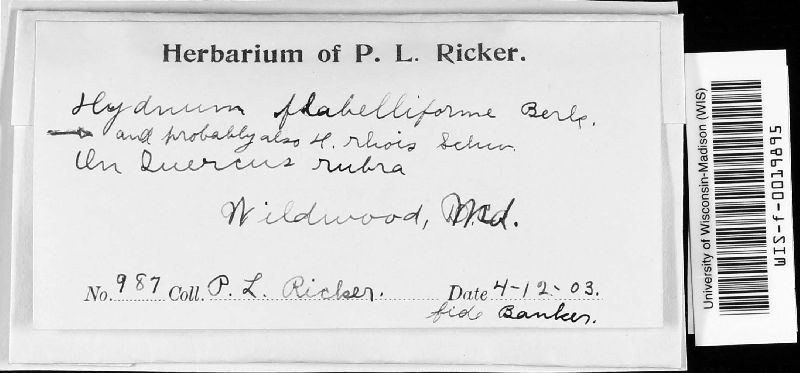 Herbarium of P. L. Ricker.
Hydnum flabelliforme Berk.
→ and probably also H. rhois Schw.
On Quercus rubra
Wildwood, Md.
No. 987 Coll. P. L. Ricker. Date 4-12-03.
fide Banker.
University of Wisconsin-Madison (WIS)
WIS-f-0019895